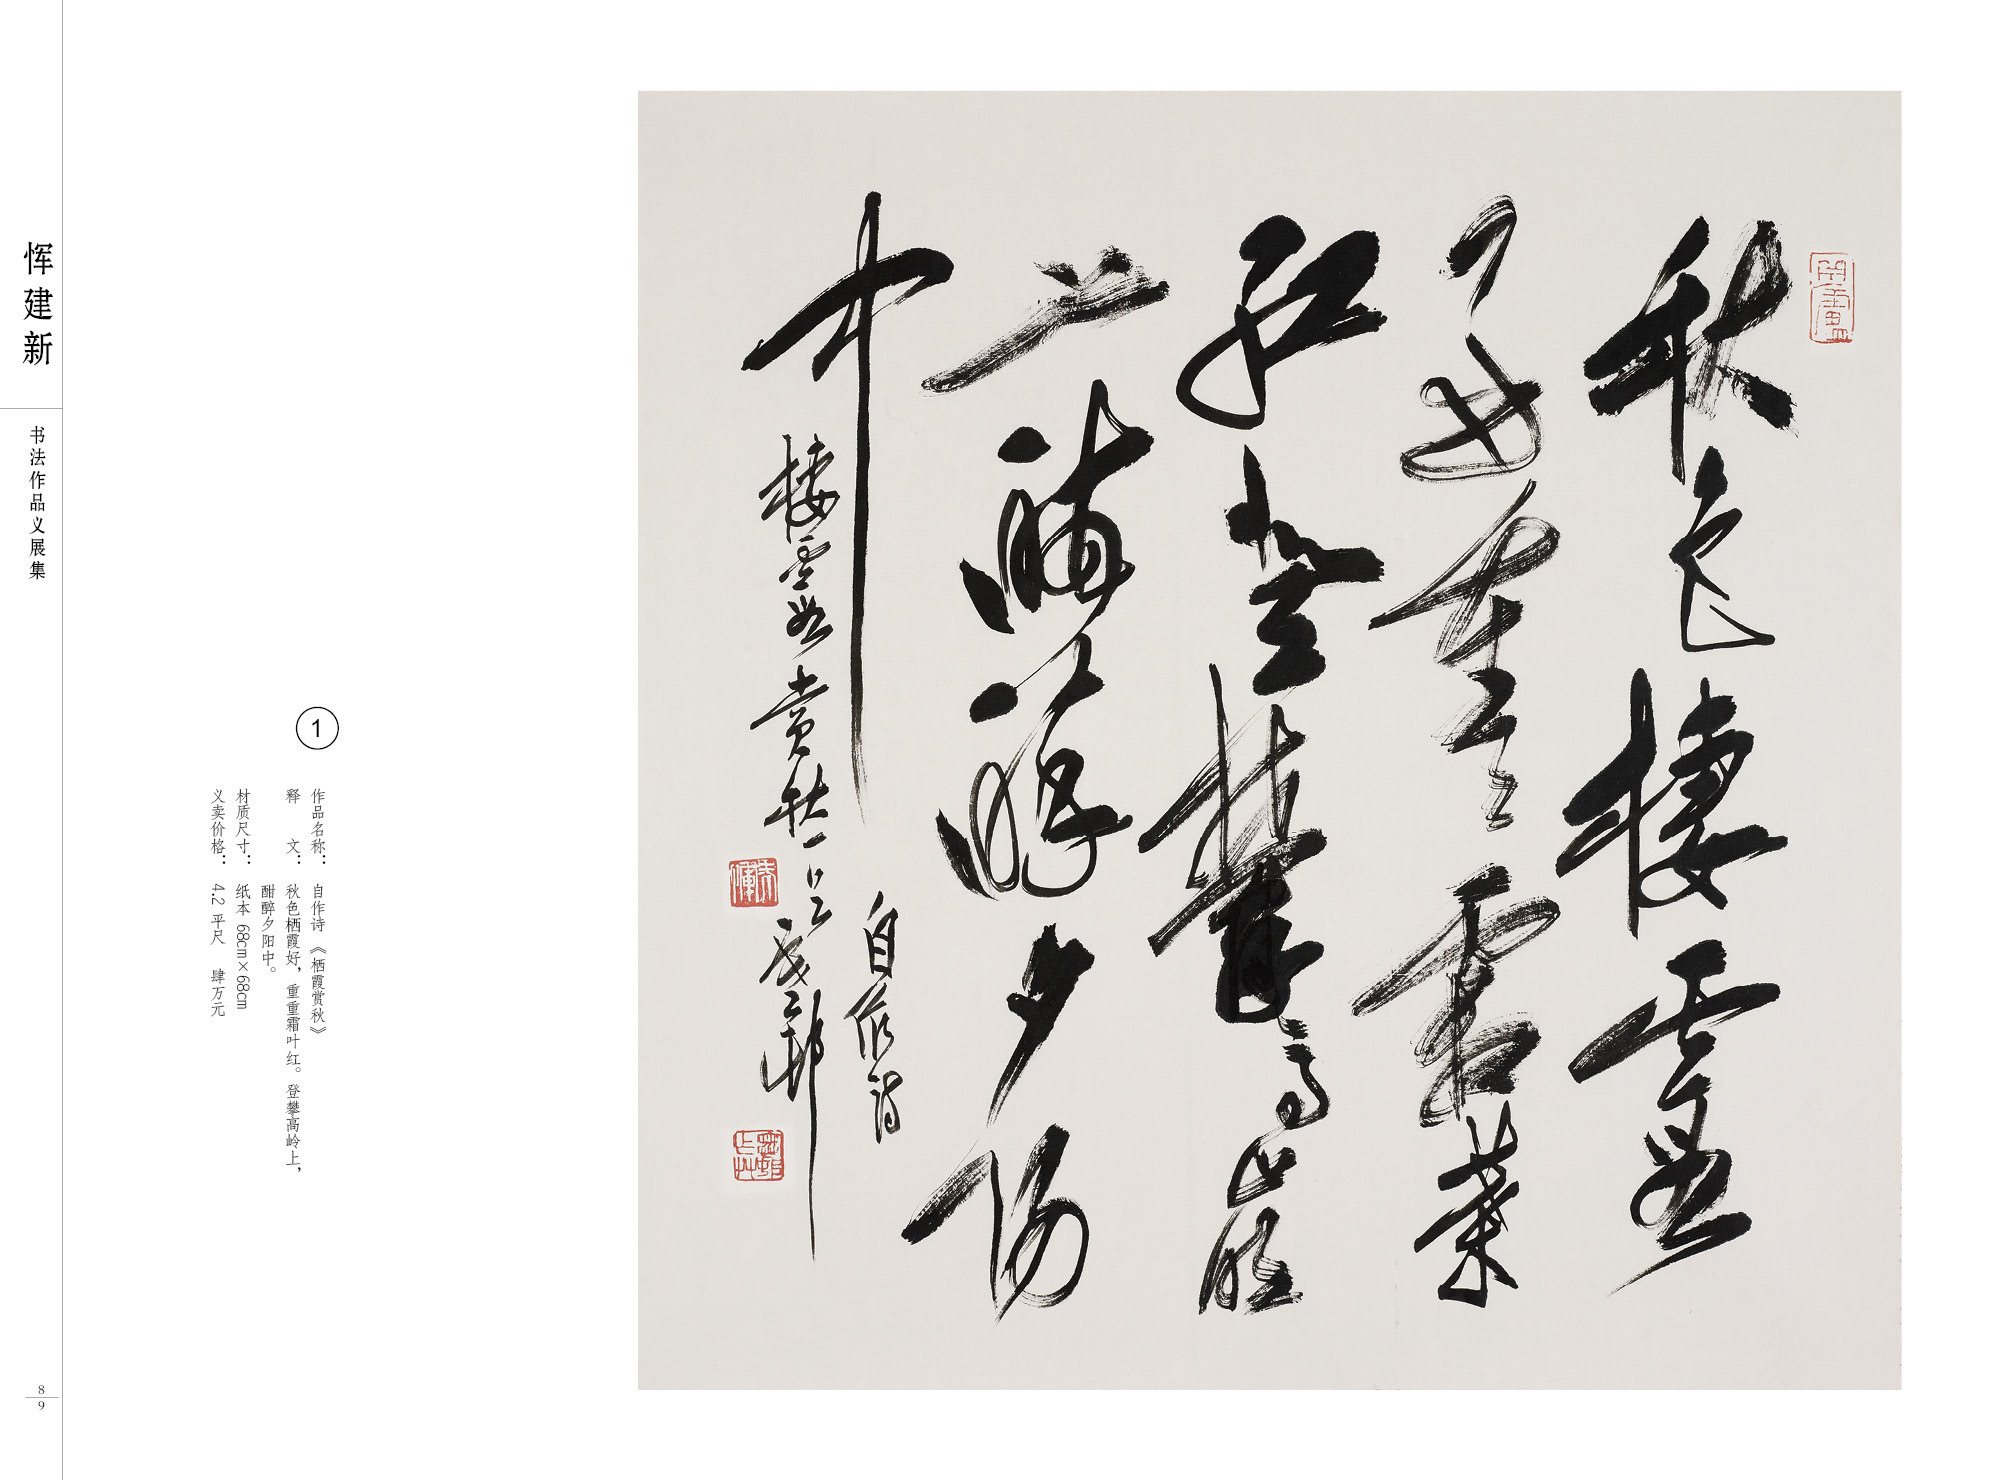 恽建新
书法作品义展集
8
9
1
作品名称： 自作诗 《栖霞赏秋》
释 文： 秋色栖霞好，重重霜叶红。登攀高岭上，
酣醉夕阳中。
材质尺寸： 纸本 68cm×68cm
义卖价格： 4.2 平尺 肆万元
秋色棲霞
好重重霜葉
紅登攀高嶺
上酣醉夕陽
中
自作詩
棲霞賞秋一